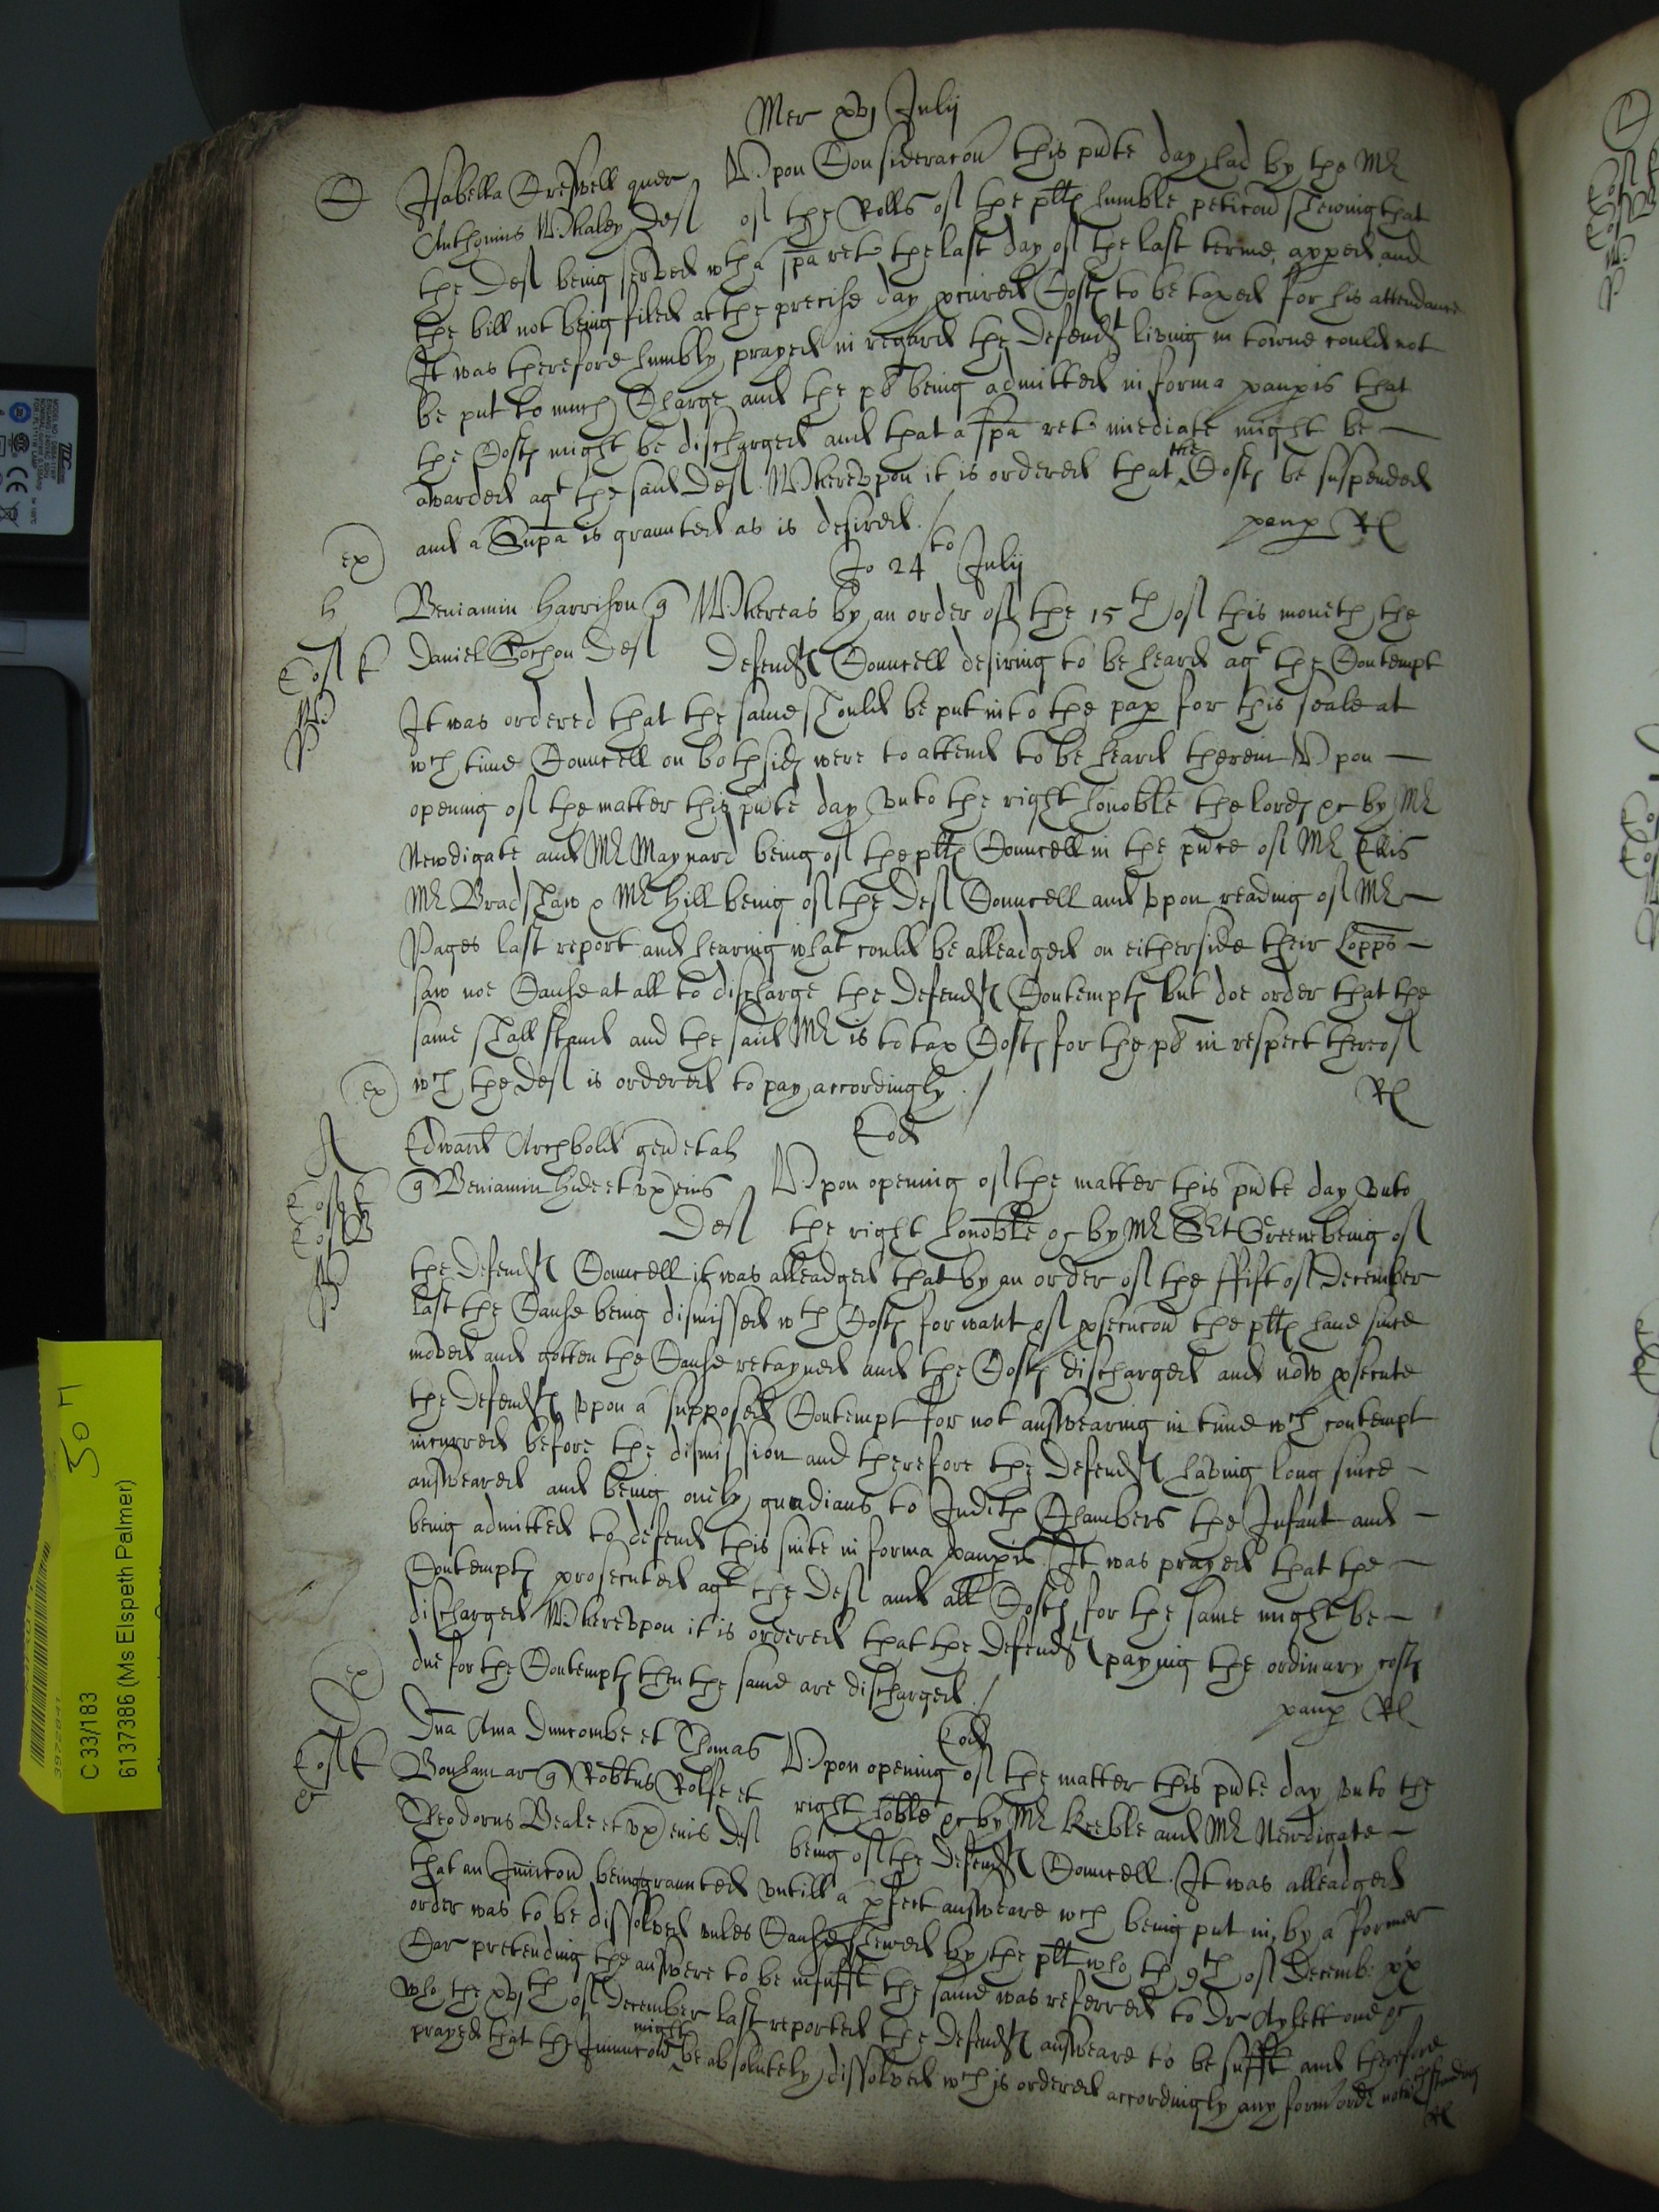 Mer xvj Julij
Isabella Creswell quer Upon Consideracon this pnte day had by the Mr
Anthonius Whaley Def of the Rolls of the plts humble peticon shewing that
the Def being served wth a spa ret the last day of the last terme, apped and
the bill not being filed at the precise day pcured Costs to be taxed for his attendance
It was therefore humbly prayed in regard the Defendt living in towne could not
be put to much Charge and the plt being admitted in forma paupis that
the Costs might be discharged and that a spa ret imediate might be
awarded agt the said Def. Whereupon it is ordered that the Costs be suspended
and a Supa is graunted as is desired
paup Rl
ex
Jo 24to Julij
H
Beniamin Harrison q Whereas by an order of the 15th of this moneth the
Daniel Def Defendts Councell desiring to be heard agt the Contempt
It was ordered that the same should be put into the pap for this seale at
wch time Councell on both sides were to attend to be heard therein Upon
opening of the matter this pnte day unto the right honoble the lords &c by Mr
Newdigate and Mr Maynard being of the plts Councell in the pnce of Mr Ellis
Mr Bradshaw & Mr Hill being of the Def Councell and upon reading of Mr
Pages last report and hearing what could be alleadged on either side their Lopps
saw noe Cause at all to discharge the Defendts Contempts but doe order that the
same shall stand and the said Mr is to tax Costs for the plt in respect thereof
ex wch the Def is ordered to pay accordingly
Rl
A
Edward Archbold gen et als Eod
q Beniamin Hide et ux eius Upon opening of the matter this pnte day unto
Def the right honoble &c by Mr Sert Greene being of
the Defendts Councell it was alleadged that by an order of the ffift of December
last the Cause being dismissed wth Costs for want of psecucon the plts haue since
moved and gotten the Cause retayned and the Costs discharged and now psecute
the Defendts upon a supposed Contempt for not answearing in time wch contempt
incurred before the dismission and therefore the Defendts having long since
answeared and being onely guardians to Judith Chambers the Infant and
being admitted to defend this suite in forma paupis. It was prayed that the
Contempts prosecuted agt the Def and all Costs for the same might be
discharged Whereupon it is ordered that the Defendts paying the ordinary costs
due for the Contempts then the same are discharged
paup Rl
ex
D
Dna Ana Duncombe et Thomas Eod
Bonham ar q Robtus Rolfe et Upon opening of the matter this pnte day unto the
Theodorus Beale et ux eius Def right hoble &c by Mr Keeble and Mr Newdigate
being of the Defendts Councell. It was alleadged
that an Iniuncon being graunted untill a pfect answeare wch being put in, by a former
order was to be dissolved unles Cause shewed by the plt who the 9th of Decemb. xx
Car pretending the answere to be insufft the same was referred to Dr Aylett one &c
who the xvjth of December last reported the Defendts answeare to be sufft and therefore
prayed that the Iniuncon might be absolutely dissolved wch is ordered accordingly any form ordr notwthstanding
Rl
C 33/183
6137386 (Ms Elspeth Palmer)